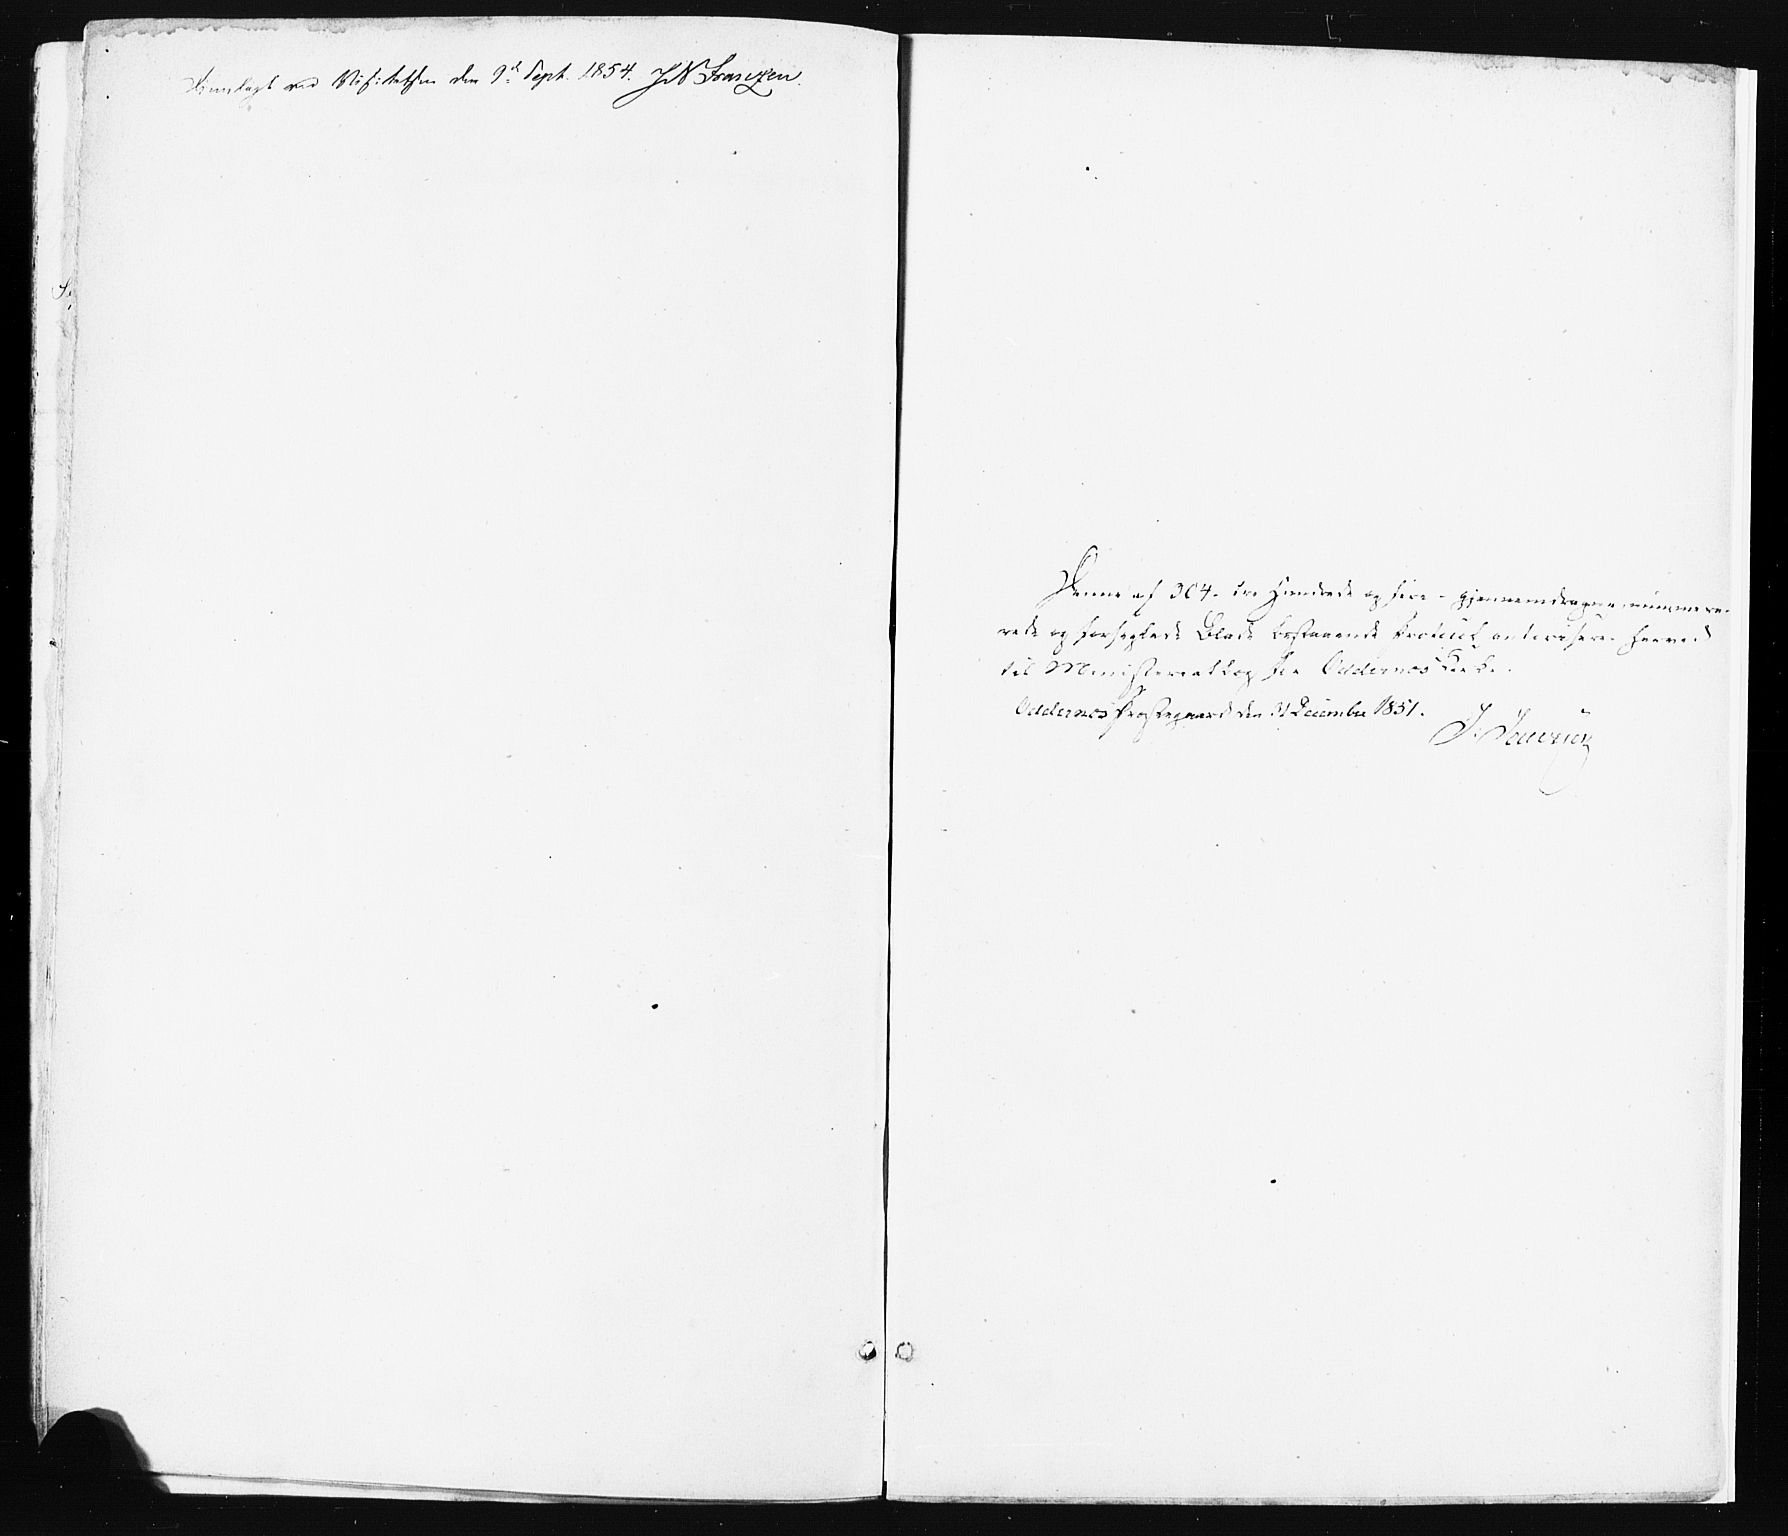 Fremlagt ved Visitatsen den 9de Sept. 1854.
Denne af 304 - tre Hundrede og fire - gjennemdragne, nummere-
rede og forseglede Blade bestaaende Protocol autoriseres herved
til Ministerialbog for Oddernes Kirke.
Oddernes Præstegaard den 31 December 1851.